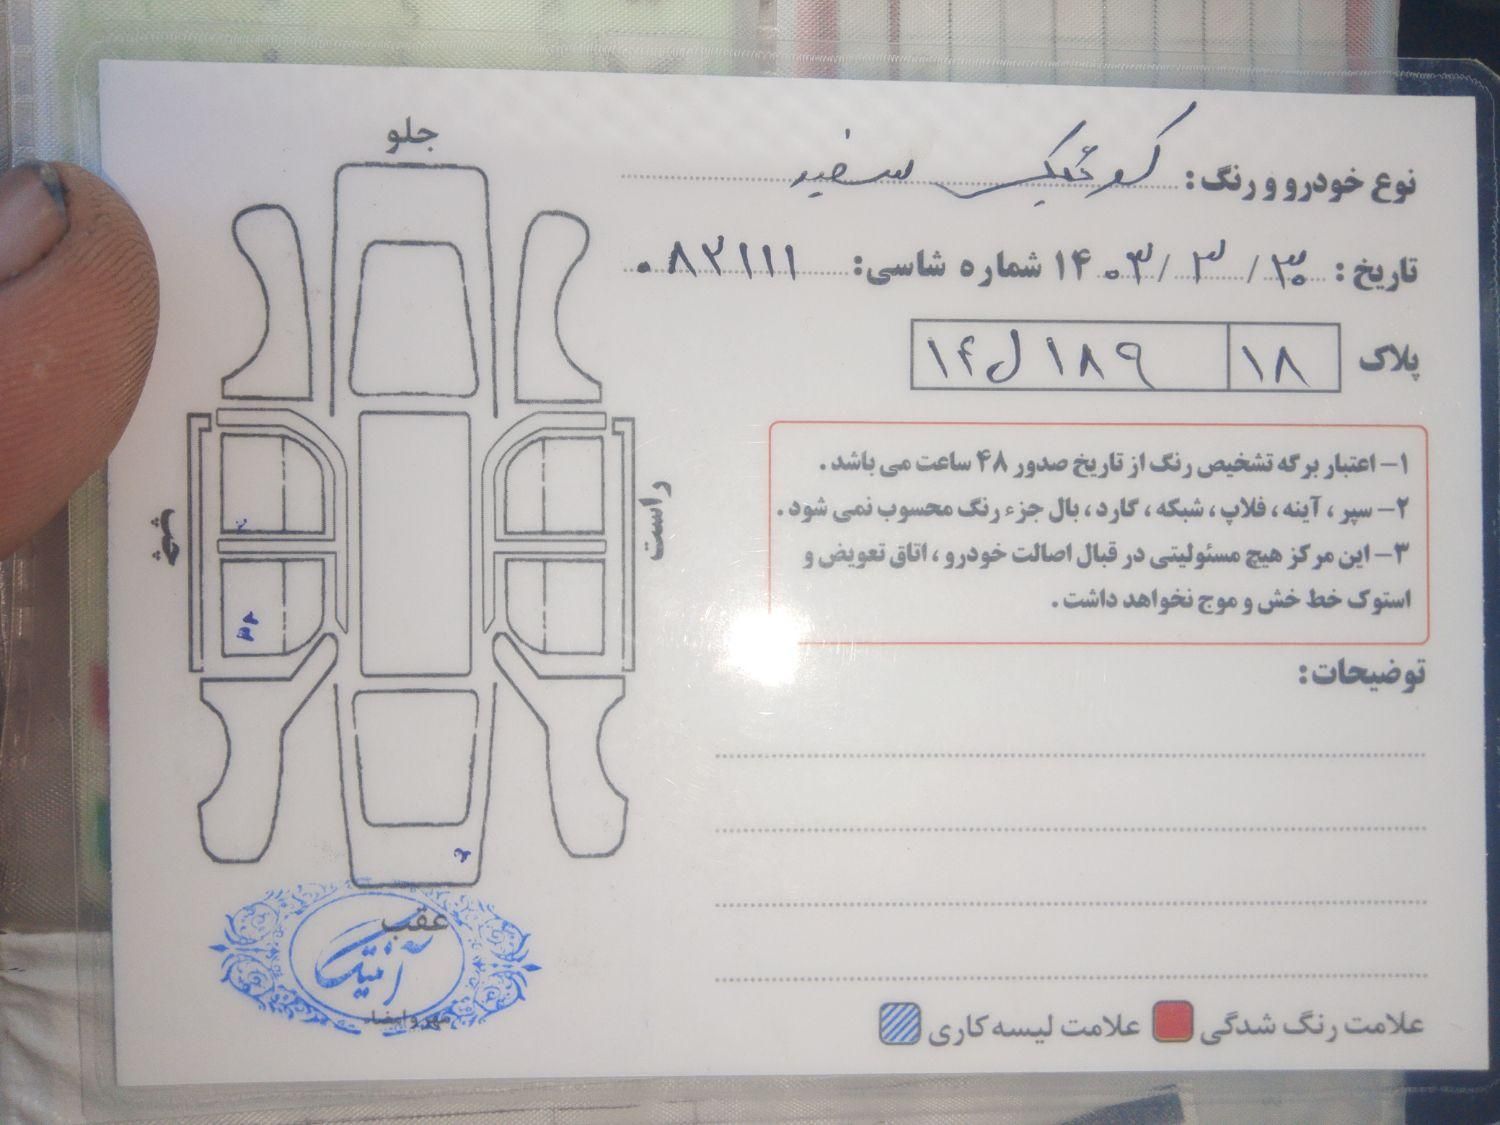 جلو
نوع خودرو و رنگ: کوئیک سفید
تاریخ: ۳۰ / ۳ / ۱۴۰۳ شماره شاسی: ۰۸۲۱۱۱
پلاک ۱۸ ۱۸۹ ل ۱۴
۱- اعتبار برگه تشخیص رنگ از تاریخ صدور ۴۸ ساعت می باشد.
۲- سپر، آینه، فلاپ، شبکه، گارد، بال جزء رنگ محسوب نمی شود.
۳- این مرکز هیچ مسئولیتی در قبال اصالت خودرو، اتاق تعویض و
استوک خط خش و موج نخواهد داشت.
راست
چپ
توضیحات:
عقب
آنتیک
مهر و امضاء
علامت رنگ شدگی
علامت لیسه کاری